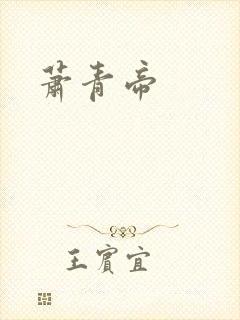 萧青帝
王宾宜